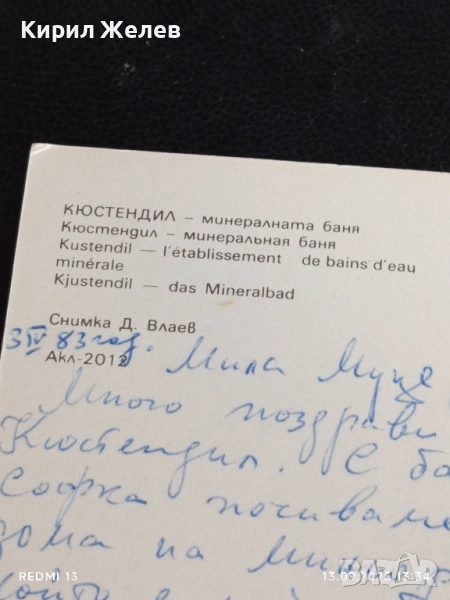 Кирил Желев
КЮСТЕНДИЛ – минералната баня
Кюстендил – минеральная баня
Kustendil — l'établissement de bains d'eau
minérale
Kjustendil — das Mineralbad
Снимка Д. Влаев
3 IV 83 год.
Акл-2012
Мила
Много поздрави
Кюстендил. С ба
Софка почиваме
дома на
REDMI 13
13:34